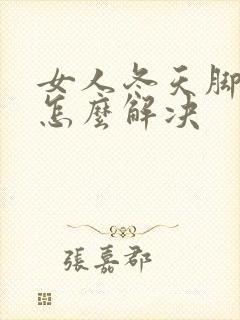 女人冬天脚
怎麼解决
張嘉郡